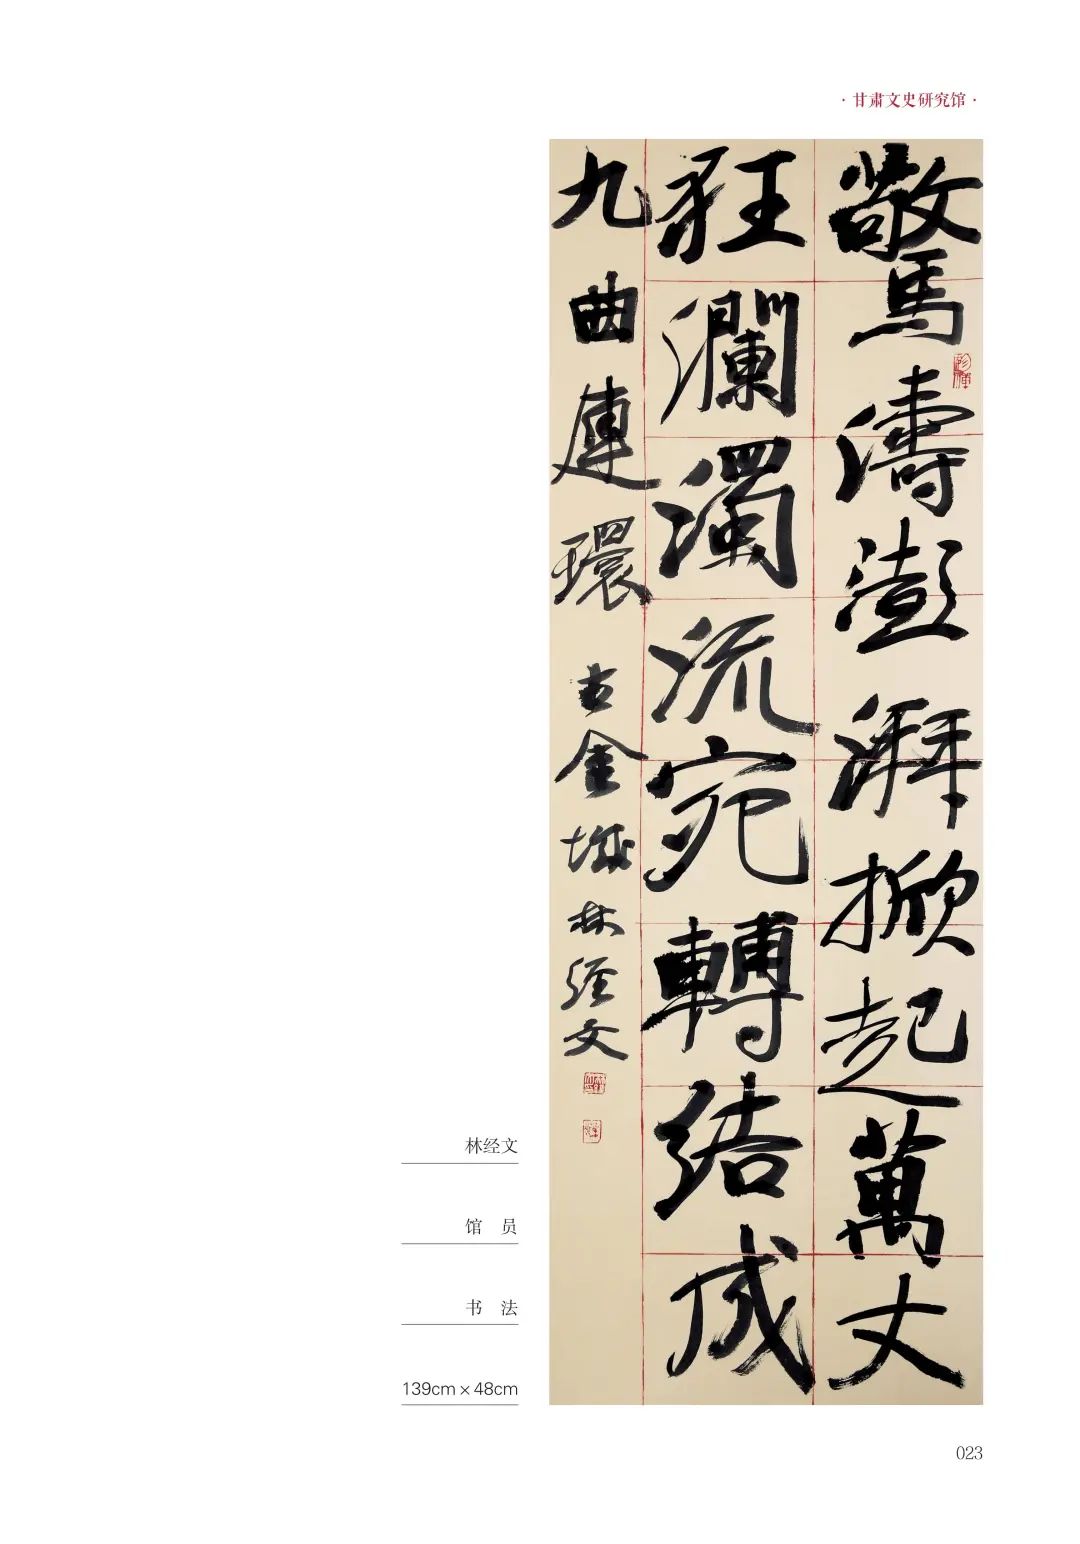 ·甘肃文史研究馆·
驚濤澎湃掀起萬丈
狂瀾濁流宛轉結成
九曲連環
古金城林经文
林经文
馆 员
书 法
139cm×48cm
023